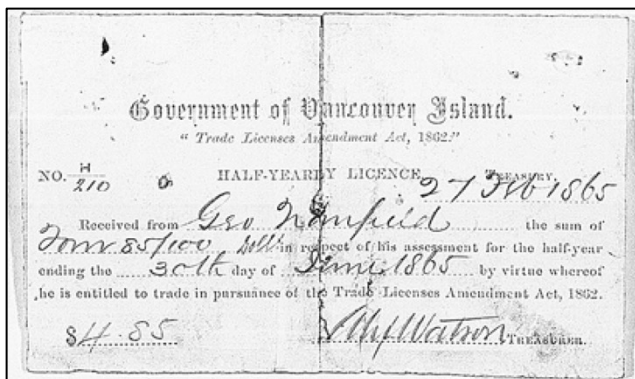 Government of Vancouver Island.
"Trade Licenses Amendment Act, 1862."
NO. H/210 HALF-YEARLY LICENCE, TREASURY,
27 Feb 1865
Received from Geo the sum of
Four 85/100 Doll in respect of his assessment for the half-year
ending the 30th day of June 1865 by virtue whereof
he is entitled to trade in pursuance of the Trade Licenses Amendment Act, 1862.
$4.85 Watson TREASURER.